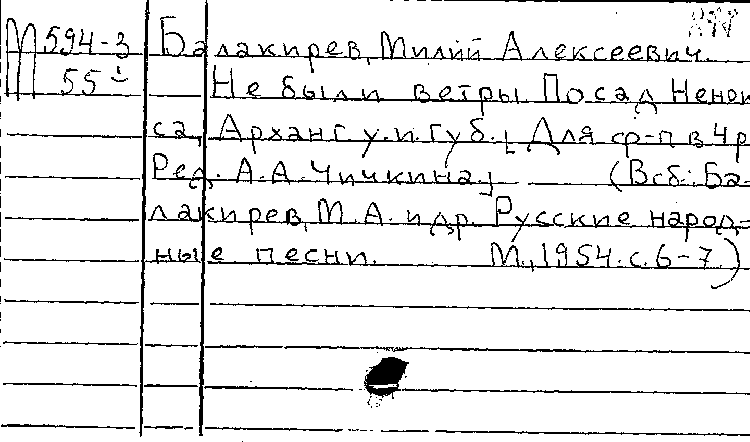 М 594-3 Балакирев, Милий Алексеевич.
55 Не были ветры. Посад Ненок-
са, Арханг у. и губ. [Для ф-п в 4 р
Ред. А. А. Чичкина] (В сб: Ба-
лакирев, М. А. и др. Русские народ-
ные песни. М., 1954. с. 6-7.)